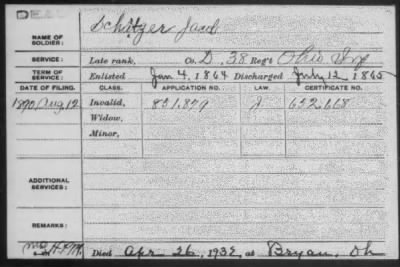 DEAD
Schötzer Jacob
NAME OF SOLDIER:
SERVICE: Late rank, Co. D, 38 Reg't Ohio Inf
TERM OF SERVICE: Enlisted Jan 4, 1864 Discharged July 12, 1865
DATE OF FILING. CLASS. APPLICATION NO. LAW. CERTIFICATE NO.
1890, Aug 12 Invalid, 831,879 J 652,668
Widow,
Minor,
ADDITIONAL SERVICES:
REMARKS:
Died Apr 26, 1932, at Bryan, Oh